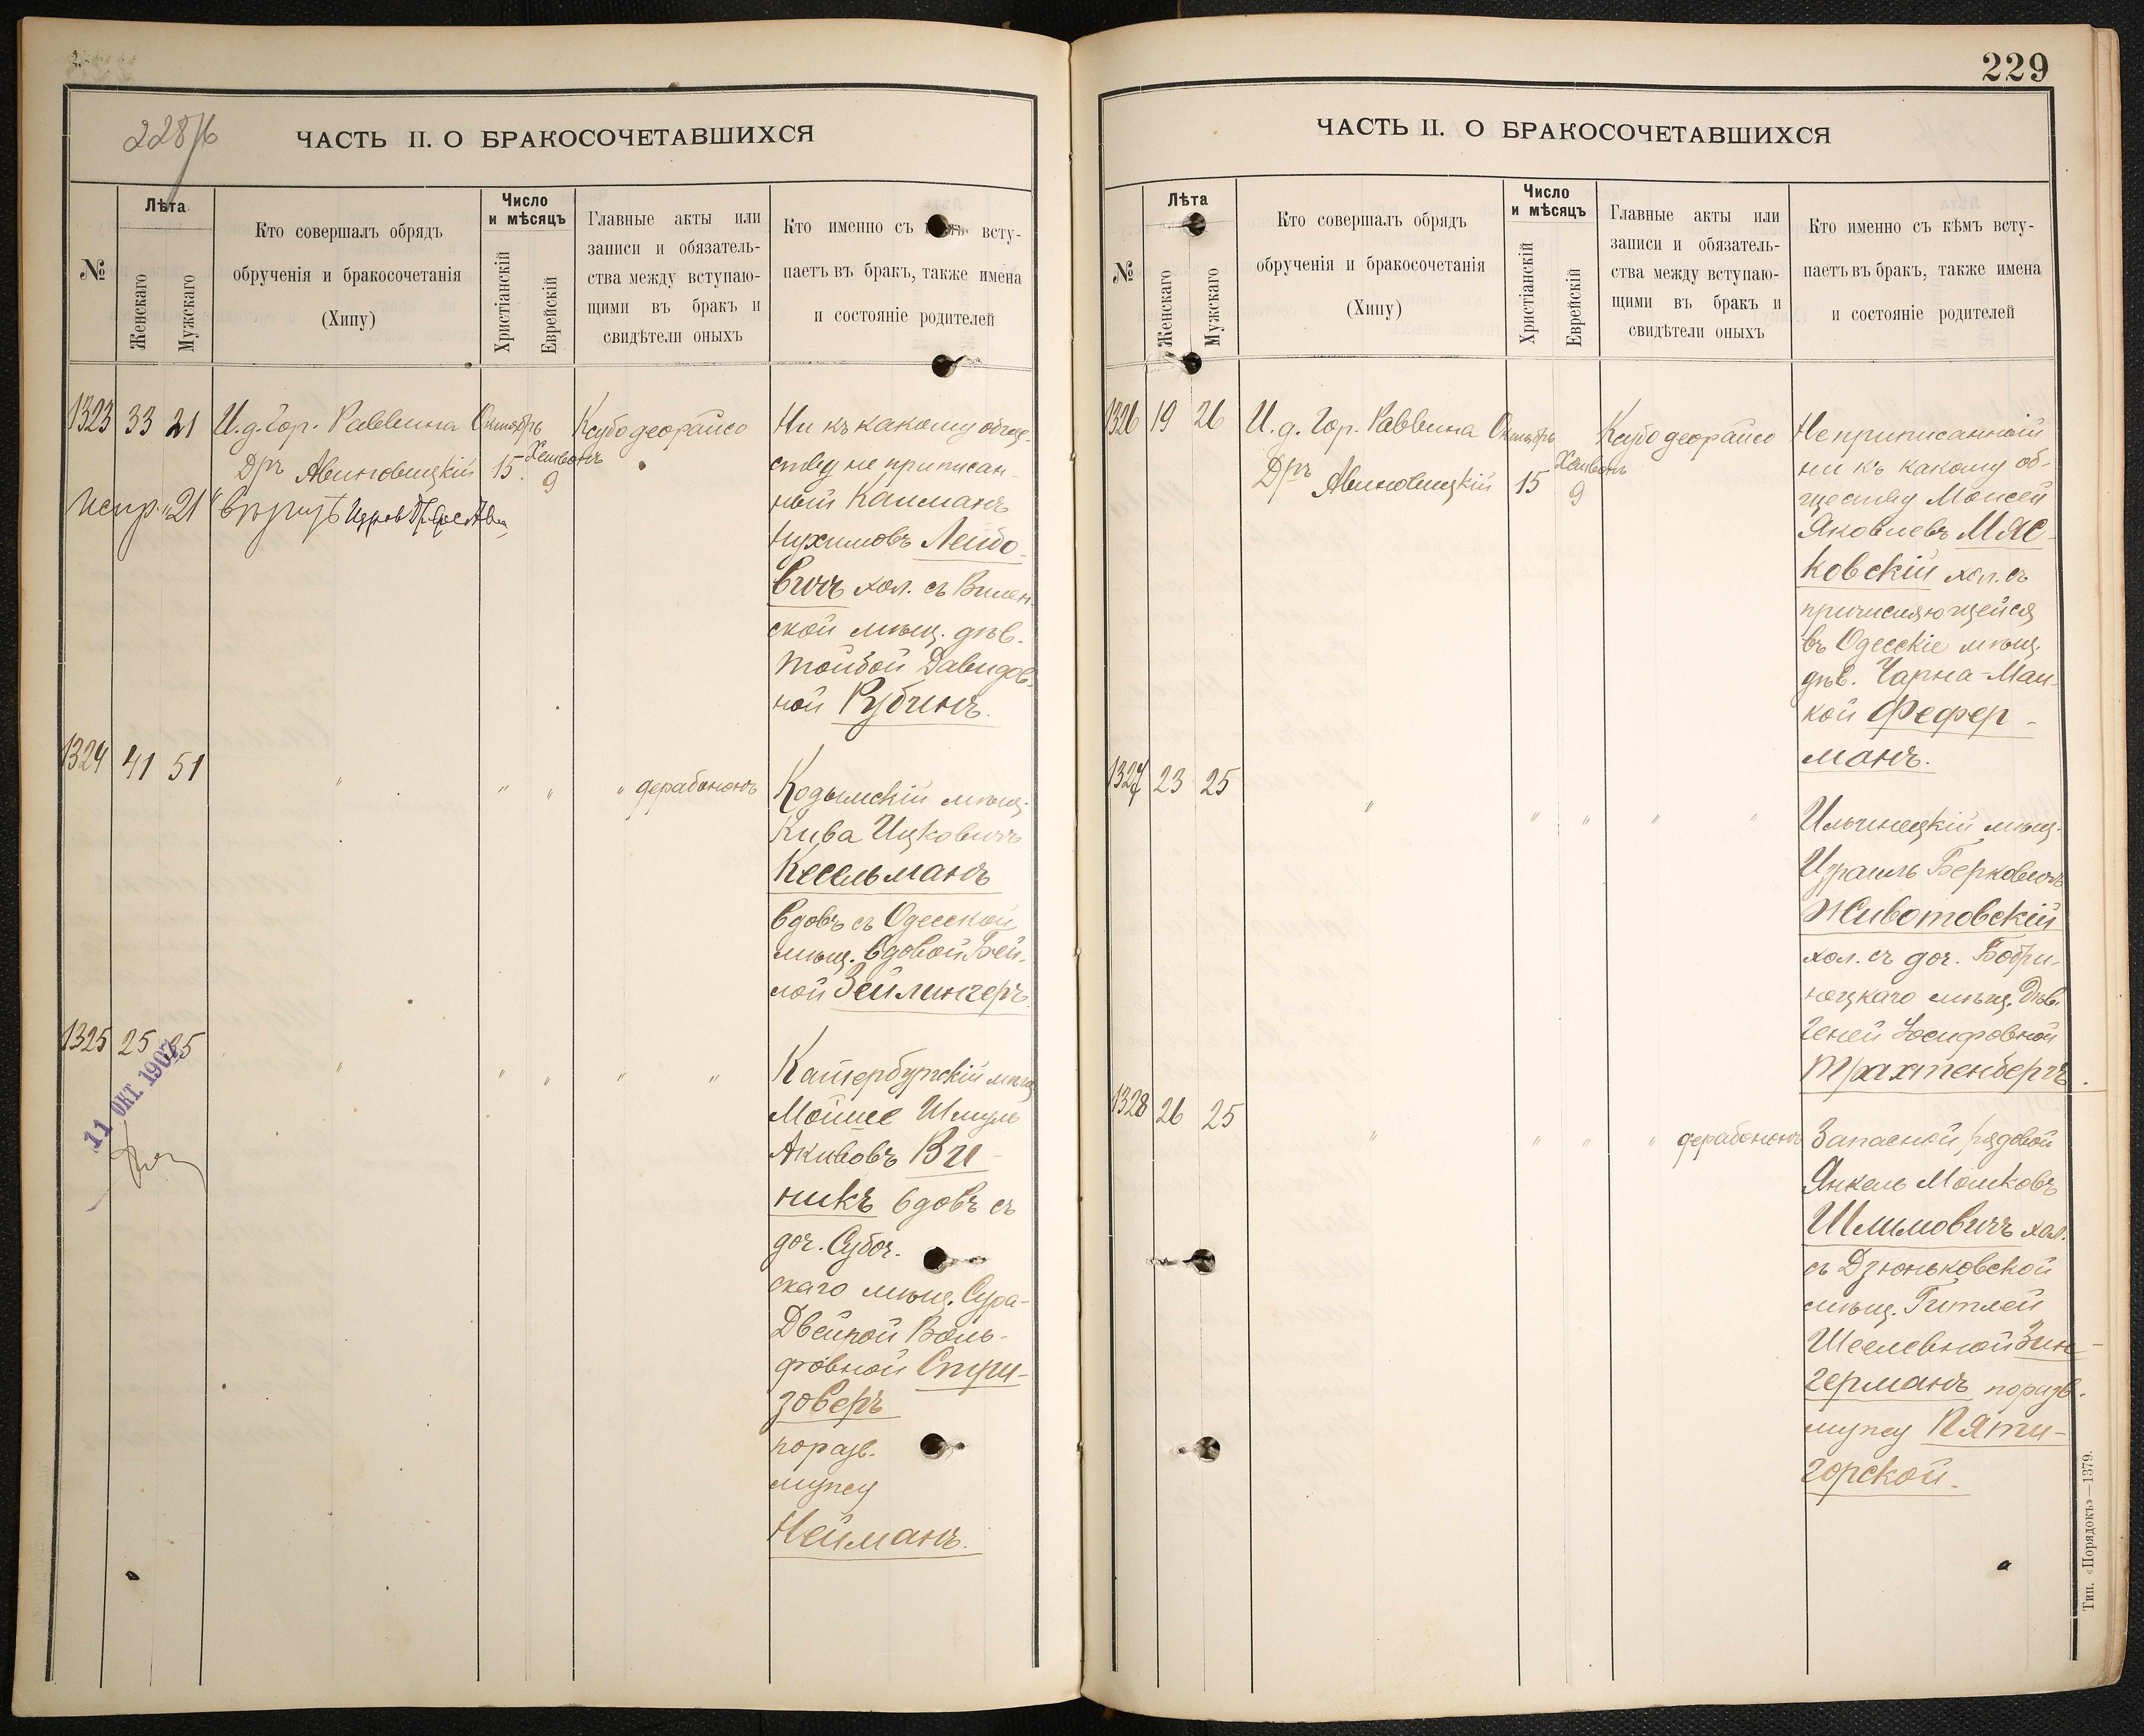 228/б
ЧАСТЬ II. О БРАКОСОЧЕТАВШИХСЯ
№
Лѣта
Женскаго
Мужскаго
Кто совершалъ обрядъ
обрученія и бракосочетанія
(Хипу)
Число
и мѣсяцъ
Христіанскій
Еврейскій
Главные акты или
записи и обязатель-
ства между вступаю-
щими въ бракъ и
свидѣтели оныхъ
Кто именно съ вступ-
паетъ въ бракъ, также имена
и состояніе родителей
1323 33 21
И.д. Гор. Раввина
Дръ Авиновицкій
Октябрь
15
Хешвонъ
9
Ксубо деорайсо
Испр. "21" вѣрить
Ни къ какому обще-
ству не приписан-
ный Калманъ
Нухимовъ Лейбо-
вичъ хол. съ Вилен-
ской мѣщ. дѣв.
Тойбой Давидов-
ной Рубинъ.
1324 41 51
" " " " дерабононъ
Кодымскій мѣщ.
Кива Ицковичъ
Кесельманъ
вдовъ съ Одесской
мѣщ. вдовой Бей-
лой Зейлингеръ.
1325 25 35
11 ОКТ. 1907
" " " " "
Катербургскій мѣщ.
Мойше Шмуль
Акивовъ Ви-
никъ вдовъ съ
доч. Субоч-
скаго мѣщ. Сура-
Двейрой Воль-
фовной Спри-
зоверъ
по разв.
мужу
Нейманъ.
229
ЧАСТЬ II. О БРАКОСОЧЕТАВШИХСЯ
№
Лѣта
Женскаго
Мужскаго
Кто совершалъ обрядъ
обрученія и бракосочетанія
(Хипу)
Число
и мѣсяцъ
Христіанскій
Еврейскій
Главные акты или
записи и обязатель-
ства между вступаю-
щими въ бракъ и
свидѣтели оныхъ
Кто именно съ кѣмъ всту-
паетъ въ бракъ, также имена
и состояніе родителей
1326 19 26
И. д. Гор. Раввина
Дръ Авиновицкій
Октябрь
15
Хешвонъ
9
Ксубо деорайсо
Неприписанный
ни къ какому об-
ществу Моисей
Яковлевъ Мяс-
ковскій хол. съ
причисляющейся
въ Одесскіе мѣщ.
дѣв. Чарна-Ман-
кой Фефер-
манъ.
1327 23 25
" " " " "
Ильинецкій мѣщ.
Израиль Берковичъ
Животовскій
хол. съ доч. Бобри-
нецкаго мѣщ. Дѣв.
Геней Іосифовной
Трахтенбергъ.
1328 26 25
" " " " дерабононъ
Запасной рядовой
Янкель Мошковъ
Шлимовичъ хол.
съ Дзюньковской
мѣщ. Гитлей
Шселевной Зин-
германъ по разв.
мужу Пяти-
горской.
Тип. «Порядокъ»—1379.